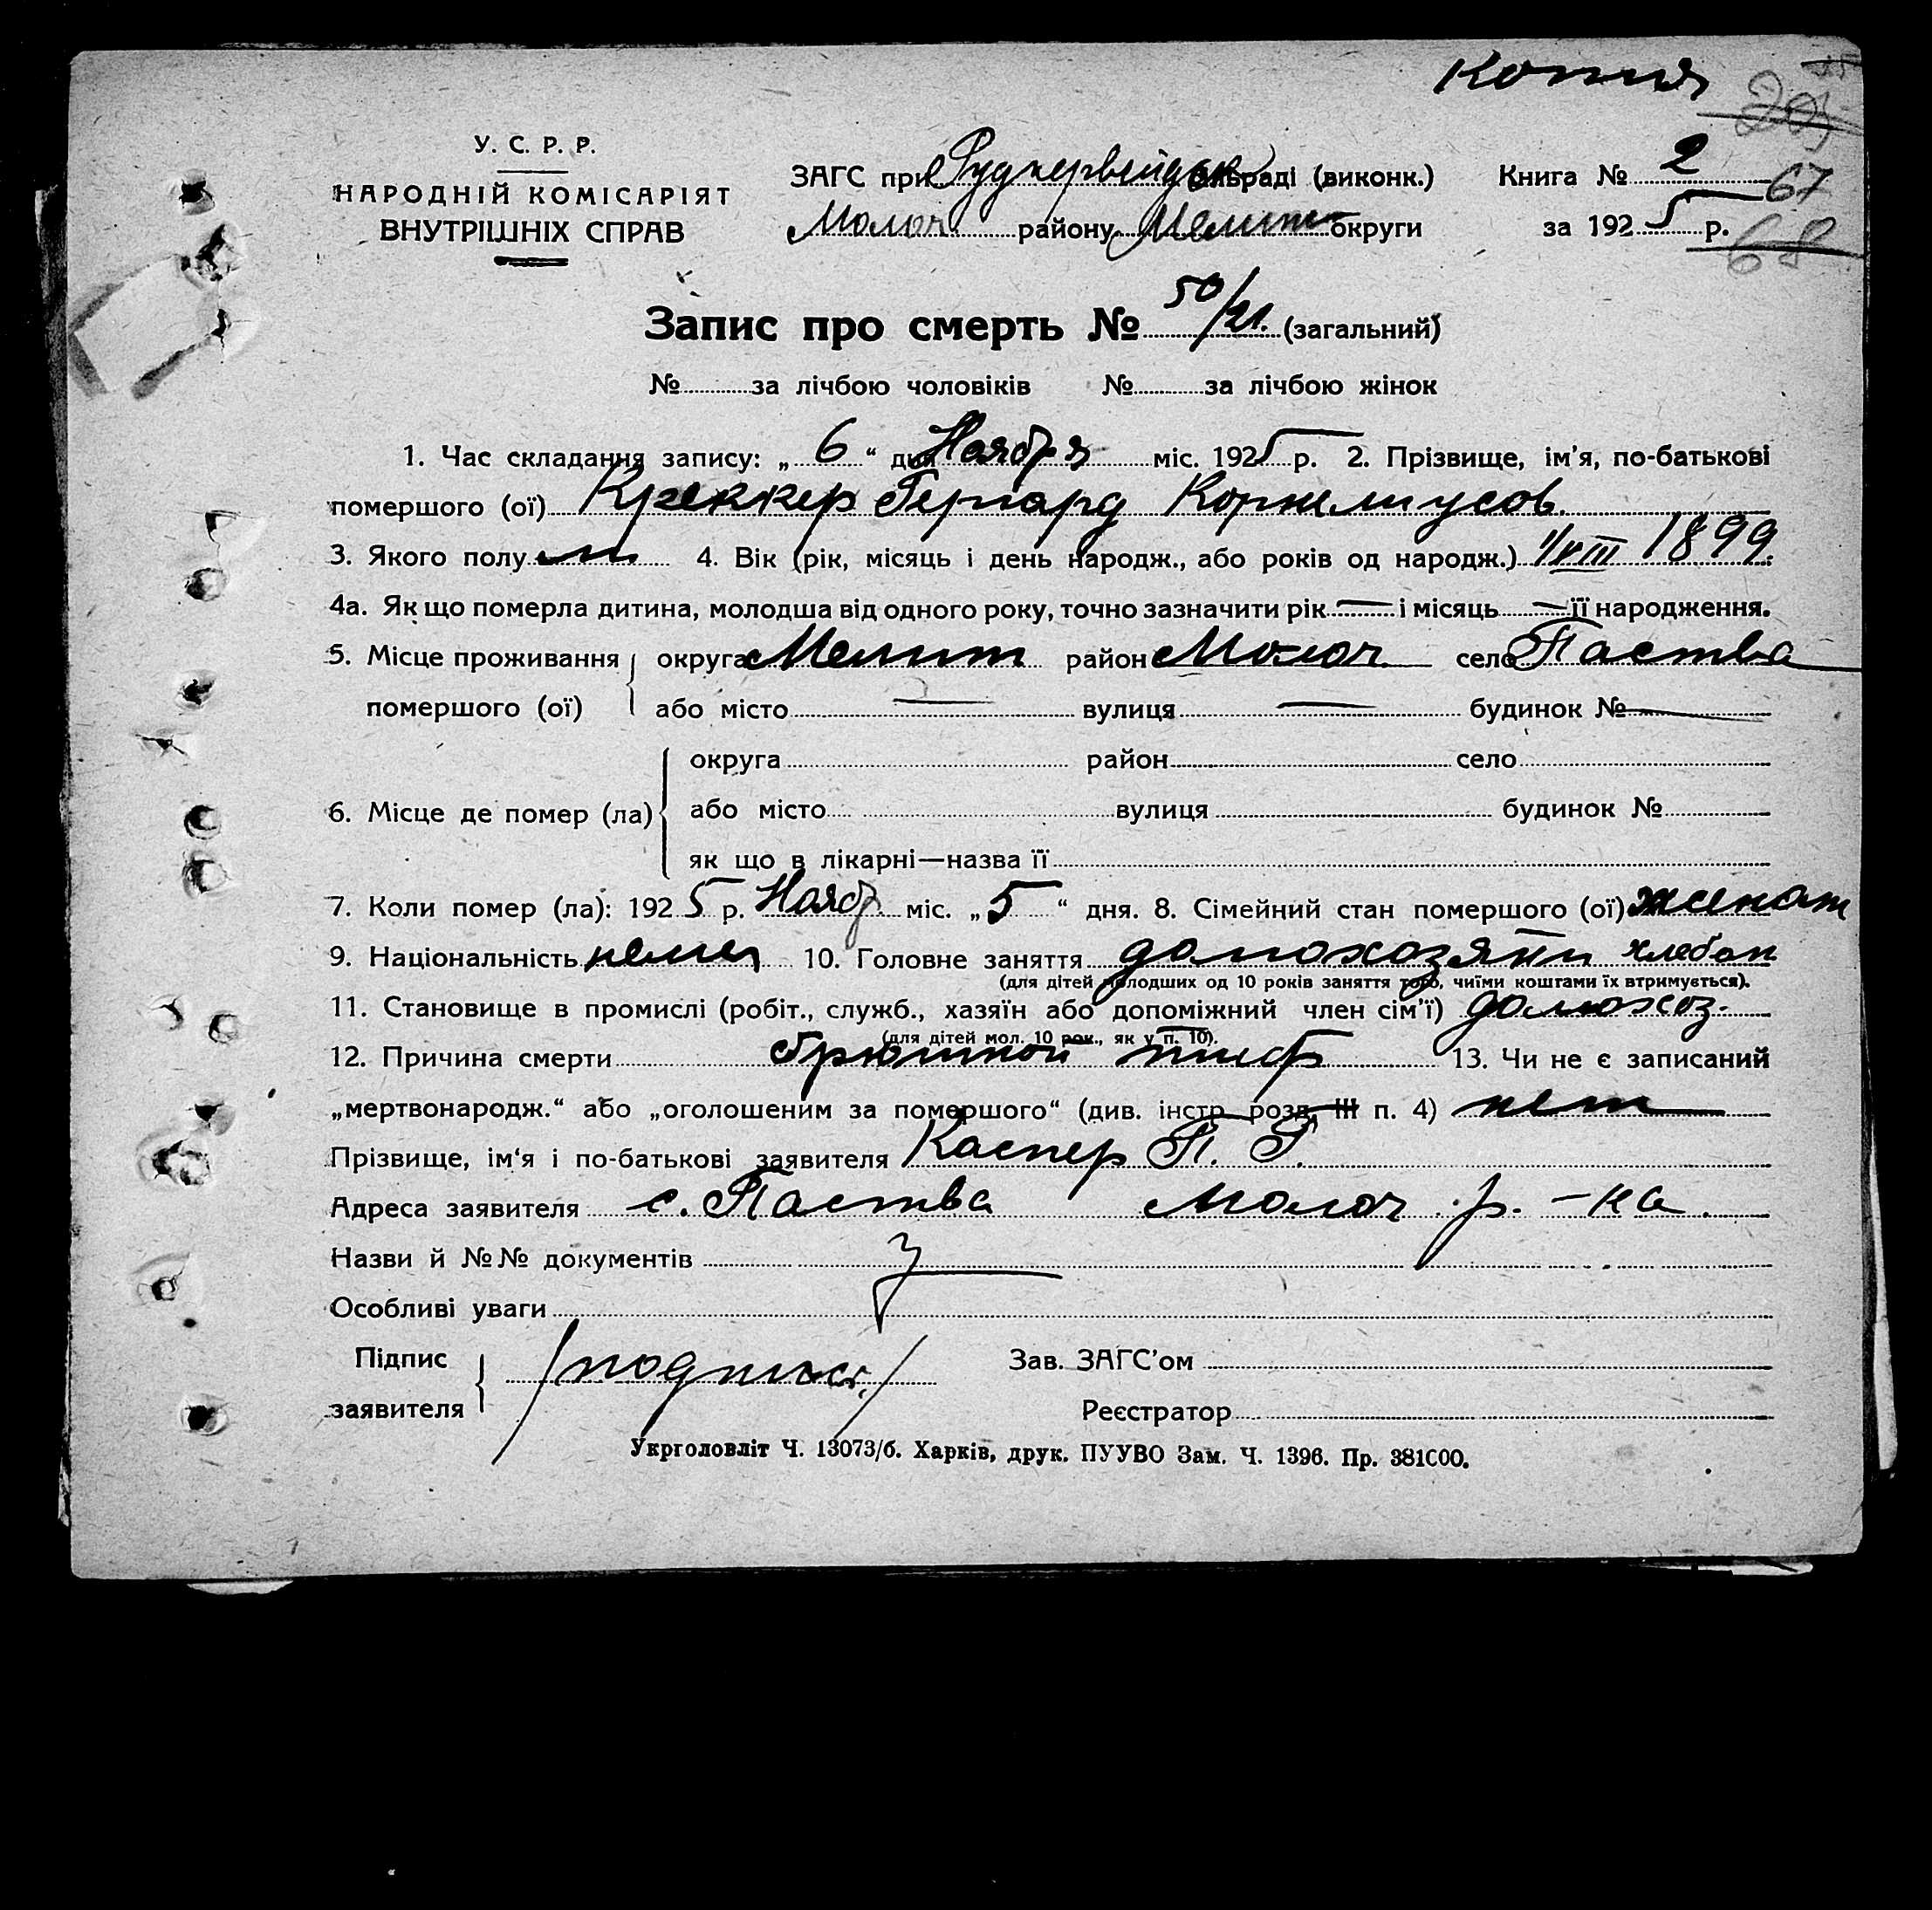 копия
203
У. С. Р. Р.
НАРОДНІЙ КОМІСАРІЯТ
ВНУТРІШНІХ СПРАВ
ЗАГС при раді (виконк.) Книга № 2
67
Молоч району Мелит округи за 1925 р.
68
Запис про смерть № 50/21. (загальний)
№ за лічбою чоловіків № за лічбою жінок
1. Час складання запису: „ 6 “ дня Ноября міс. 1925 р. 2. Прізвище, ім'я, по-батькові
помершого (ої) Креккер Гергард Корнелиусов.
3. Якого полу м 4. Вік (рік, місяць і день народж., або років од народж.) 1/VIII 1899.
4а. Як що померла дитина, молодша від одного року, точно зазначити рік — і місяць — її народження.
5. Місце проживання округа Мелит район Молоч село Паства
помершого (ої) або місто — вулиця — будинок № —
округа район село
6. Місце де помер (ла) або місто вулиця будинок №
як що в лікарні—назва її
7. Коли помер (ла): 1925 р. Нояб. міс. „ 5 “ дня. 8. Сімейний стан помершого (ої) женат
9. Національність немец 10. Головне заняття домохозяин хлебоп
(для дітей молодших од 10 років заняття того, чиїми коштами їх втримується).
11. Становище в промислі (робіт., служб., хазяїн або допоміжний член сім'ї) домохоз.
(для дітей мол. 10 рок., як у п. 10).
12. Причина смерти брюшной тиф 13. Чи не є записаний
„мертвонародж.“ або „оголошеним за помершого“ (див. інстр. розд. III п. 4) нет
Прізвище, ім'я і по-батькові заявителя Каспер П. Г.
Адреса заявителя с. Паства Молоч. р.-ка.
Назви й №№ документів
Особливі уваги
Підпис
заявителя /подпись/
Зав. ЗАГС'ом
Реєстратор
Укрголовліт Ч. 13073/б. Харків, друк. ПУУВО Зам. Ч. 1396. Пр. 381000.